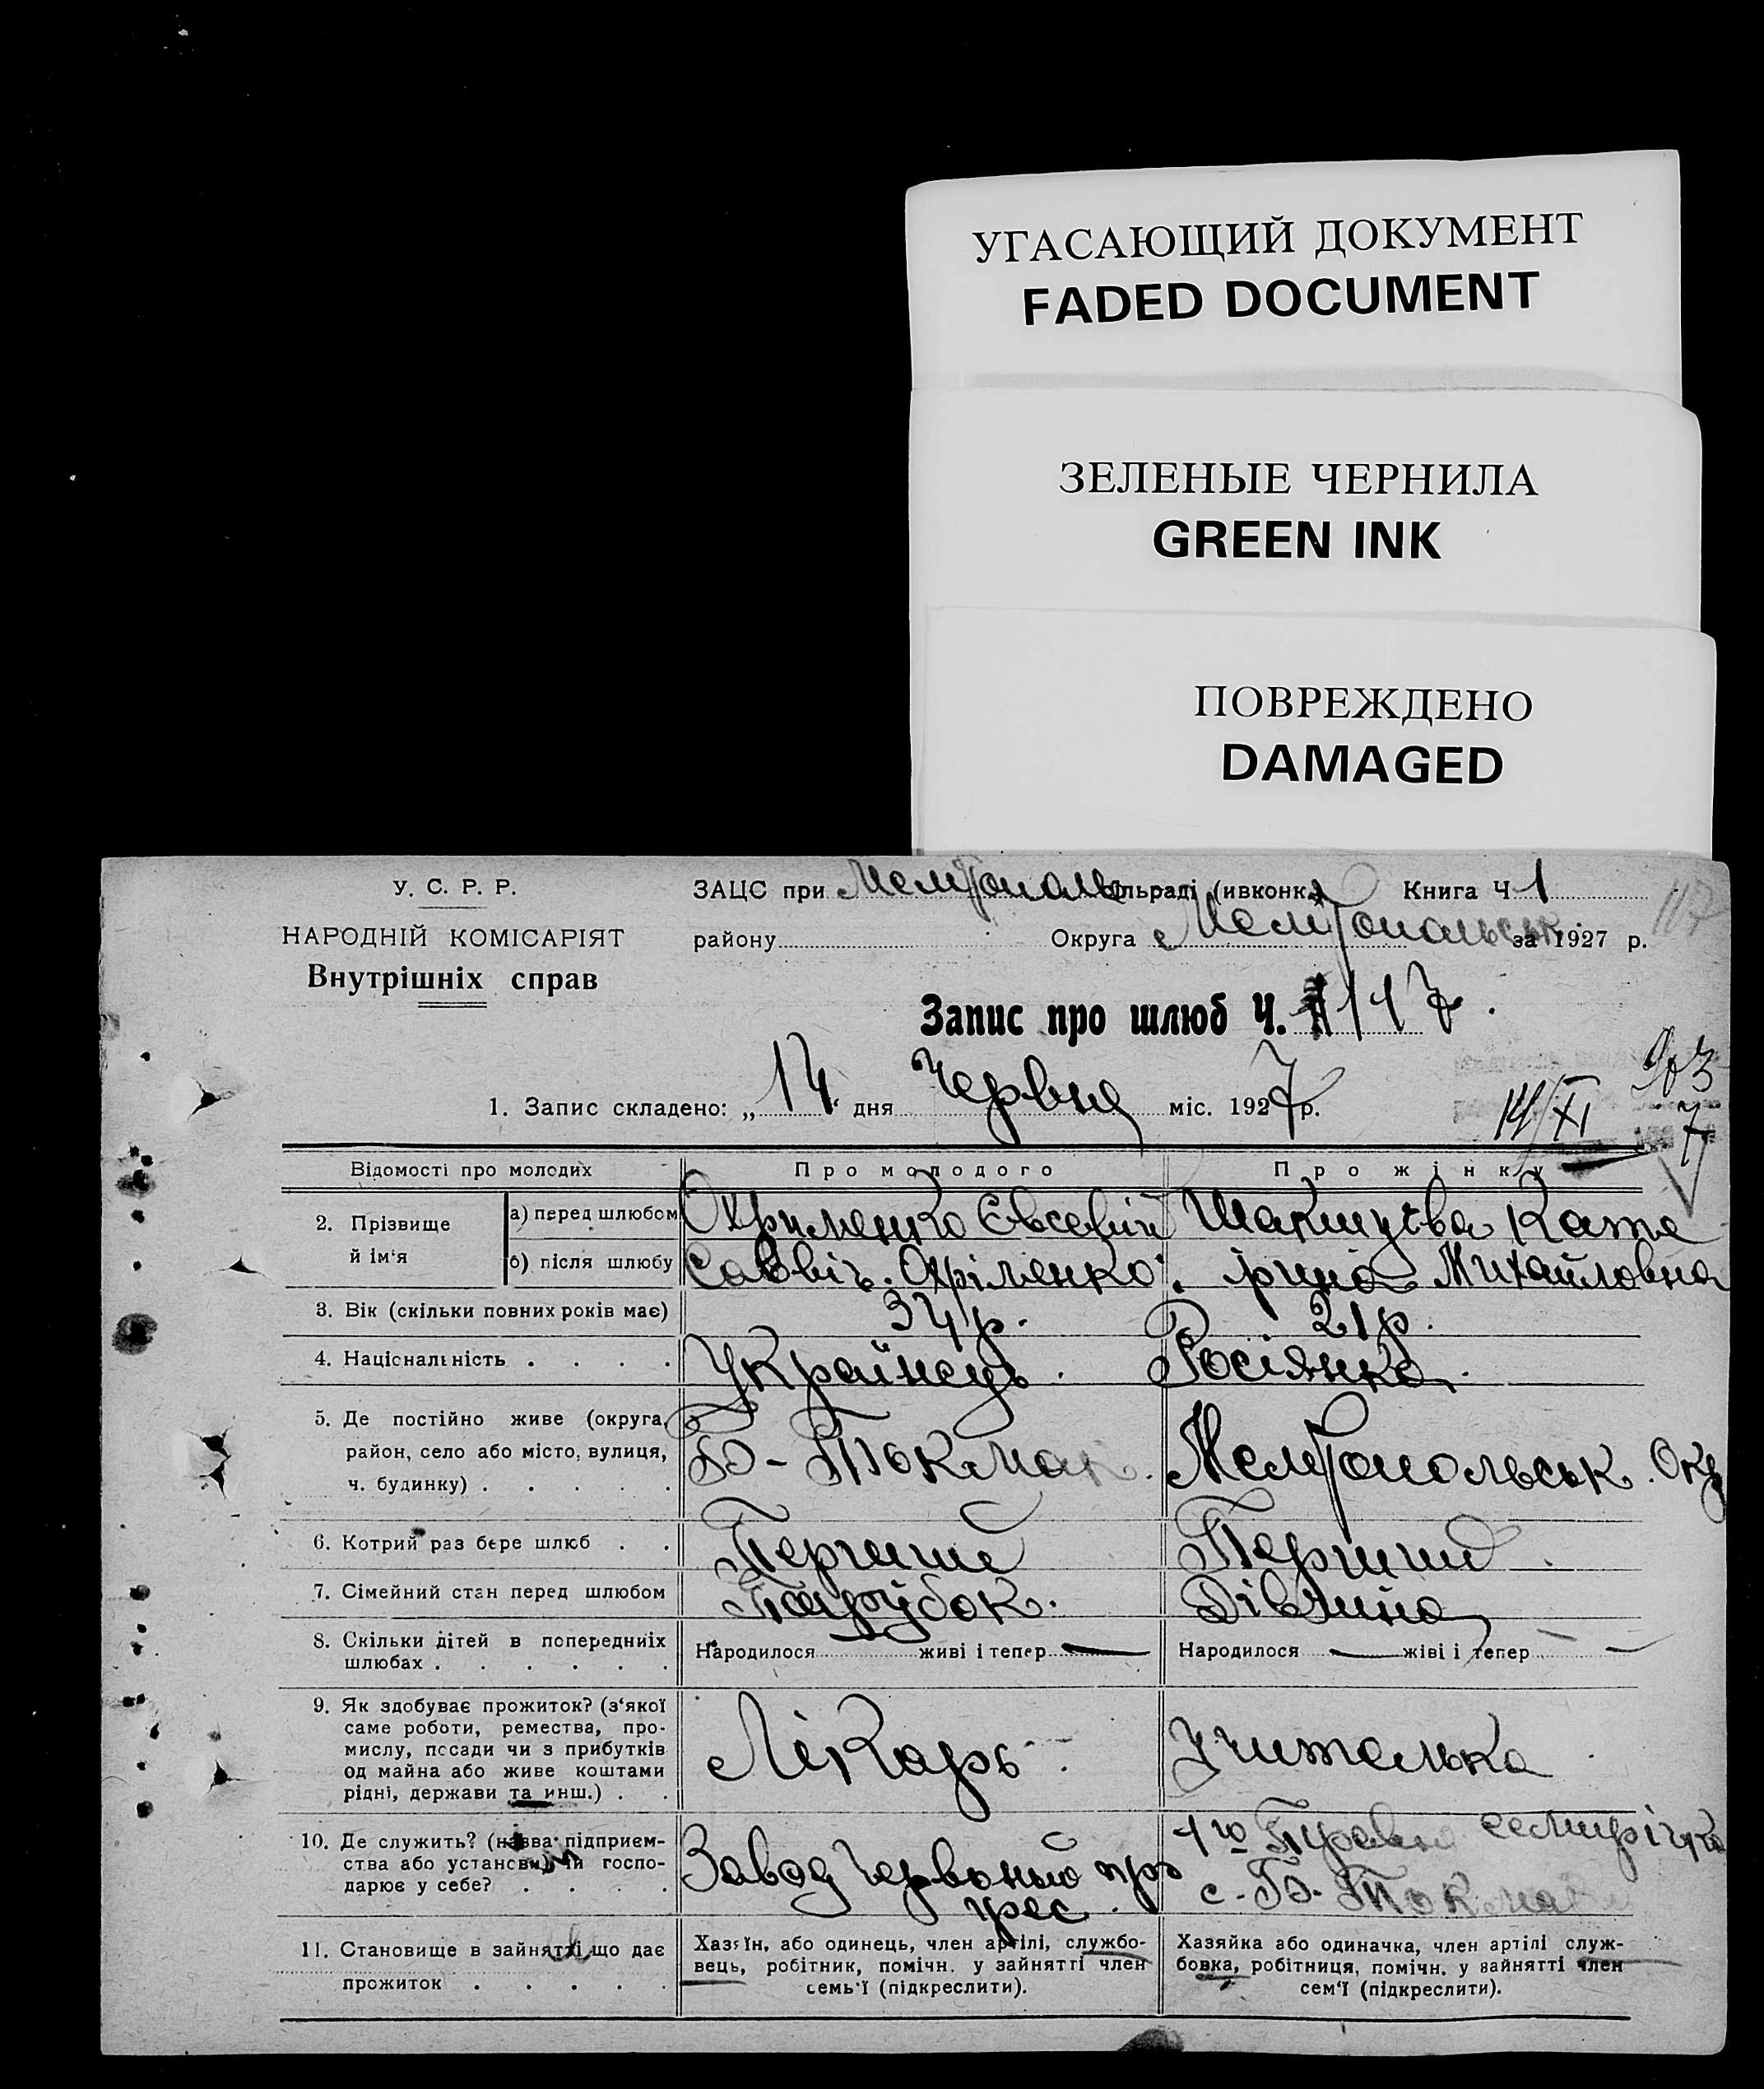 УГАСАЮЩИЙ ДОКУМЕНТ
FADED DOCUMENT
ЗЕЛЕНЫЕ ЧЕРНИЛА
GREEN INK
ПОВРЕЖДЕНО
DAMAGED
У. С. Р. Р.
НАРОДНІЙ КОМІСАРІЯТ
Внутрішніх справ
ЗАЦС при сільраді (ивконк.) Книга Ч 1
району Округа Мелітопольськ. за 1927 р.
117
Запис про шлюб Ч. 117.
1. Запис складено: „14“ дня Червня міс. 1927 р.
14/XI
Відомості про молодих Про молодого Про жінку
2. Прізвище й ім'я
а) перед шлюбом Охрименко Євсевій Кате
б) після шлюбу Саввіч. Охріменко. ріна Михайловна
3. Вік (скільки повних років має) 34 р. 21 р.
4. Національність . . . . Українець. Росіянка.
5. Де постійно живе (округа, район, село або місто, вулиця, ч. будинку) . . . . . Б-Токмак. Мелітопольськ. Окр
6. Котрий раз бере шлюб . . Перший Перший.
7. Сімейний стан перед шлюбом Парубок. Дівчина
8. Скільки дітей в попередніх шлюбах . . . . . . Народилося живі і тепер Народилося жіві і тепер
9. Як здобуває прожиток? (з'якої саме роботи, ремества, промислу, посади чи з прибутків од майна або живе коштами рідні, держави та инш.) . . Лікарь. Учителька
10. Де служить? (назва підприємства або установи) чи господарює у себе? . . . . Завод Червоний прогрес. 1го Травня семирічка с. Б. Токмак
11. Становище в зайнятті, що дає прожиток . . . . .
Хазяїн, або одинець, член артілі, службовець, робітник, помічн. у зайнятті член семь'ї (підкреслити).
Хазяйка або одиначка, член артілі службовка, робітниця, помічн. у зайнятті член сем'ї (підкреслити).